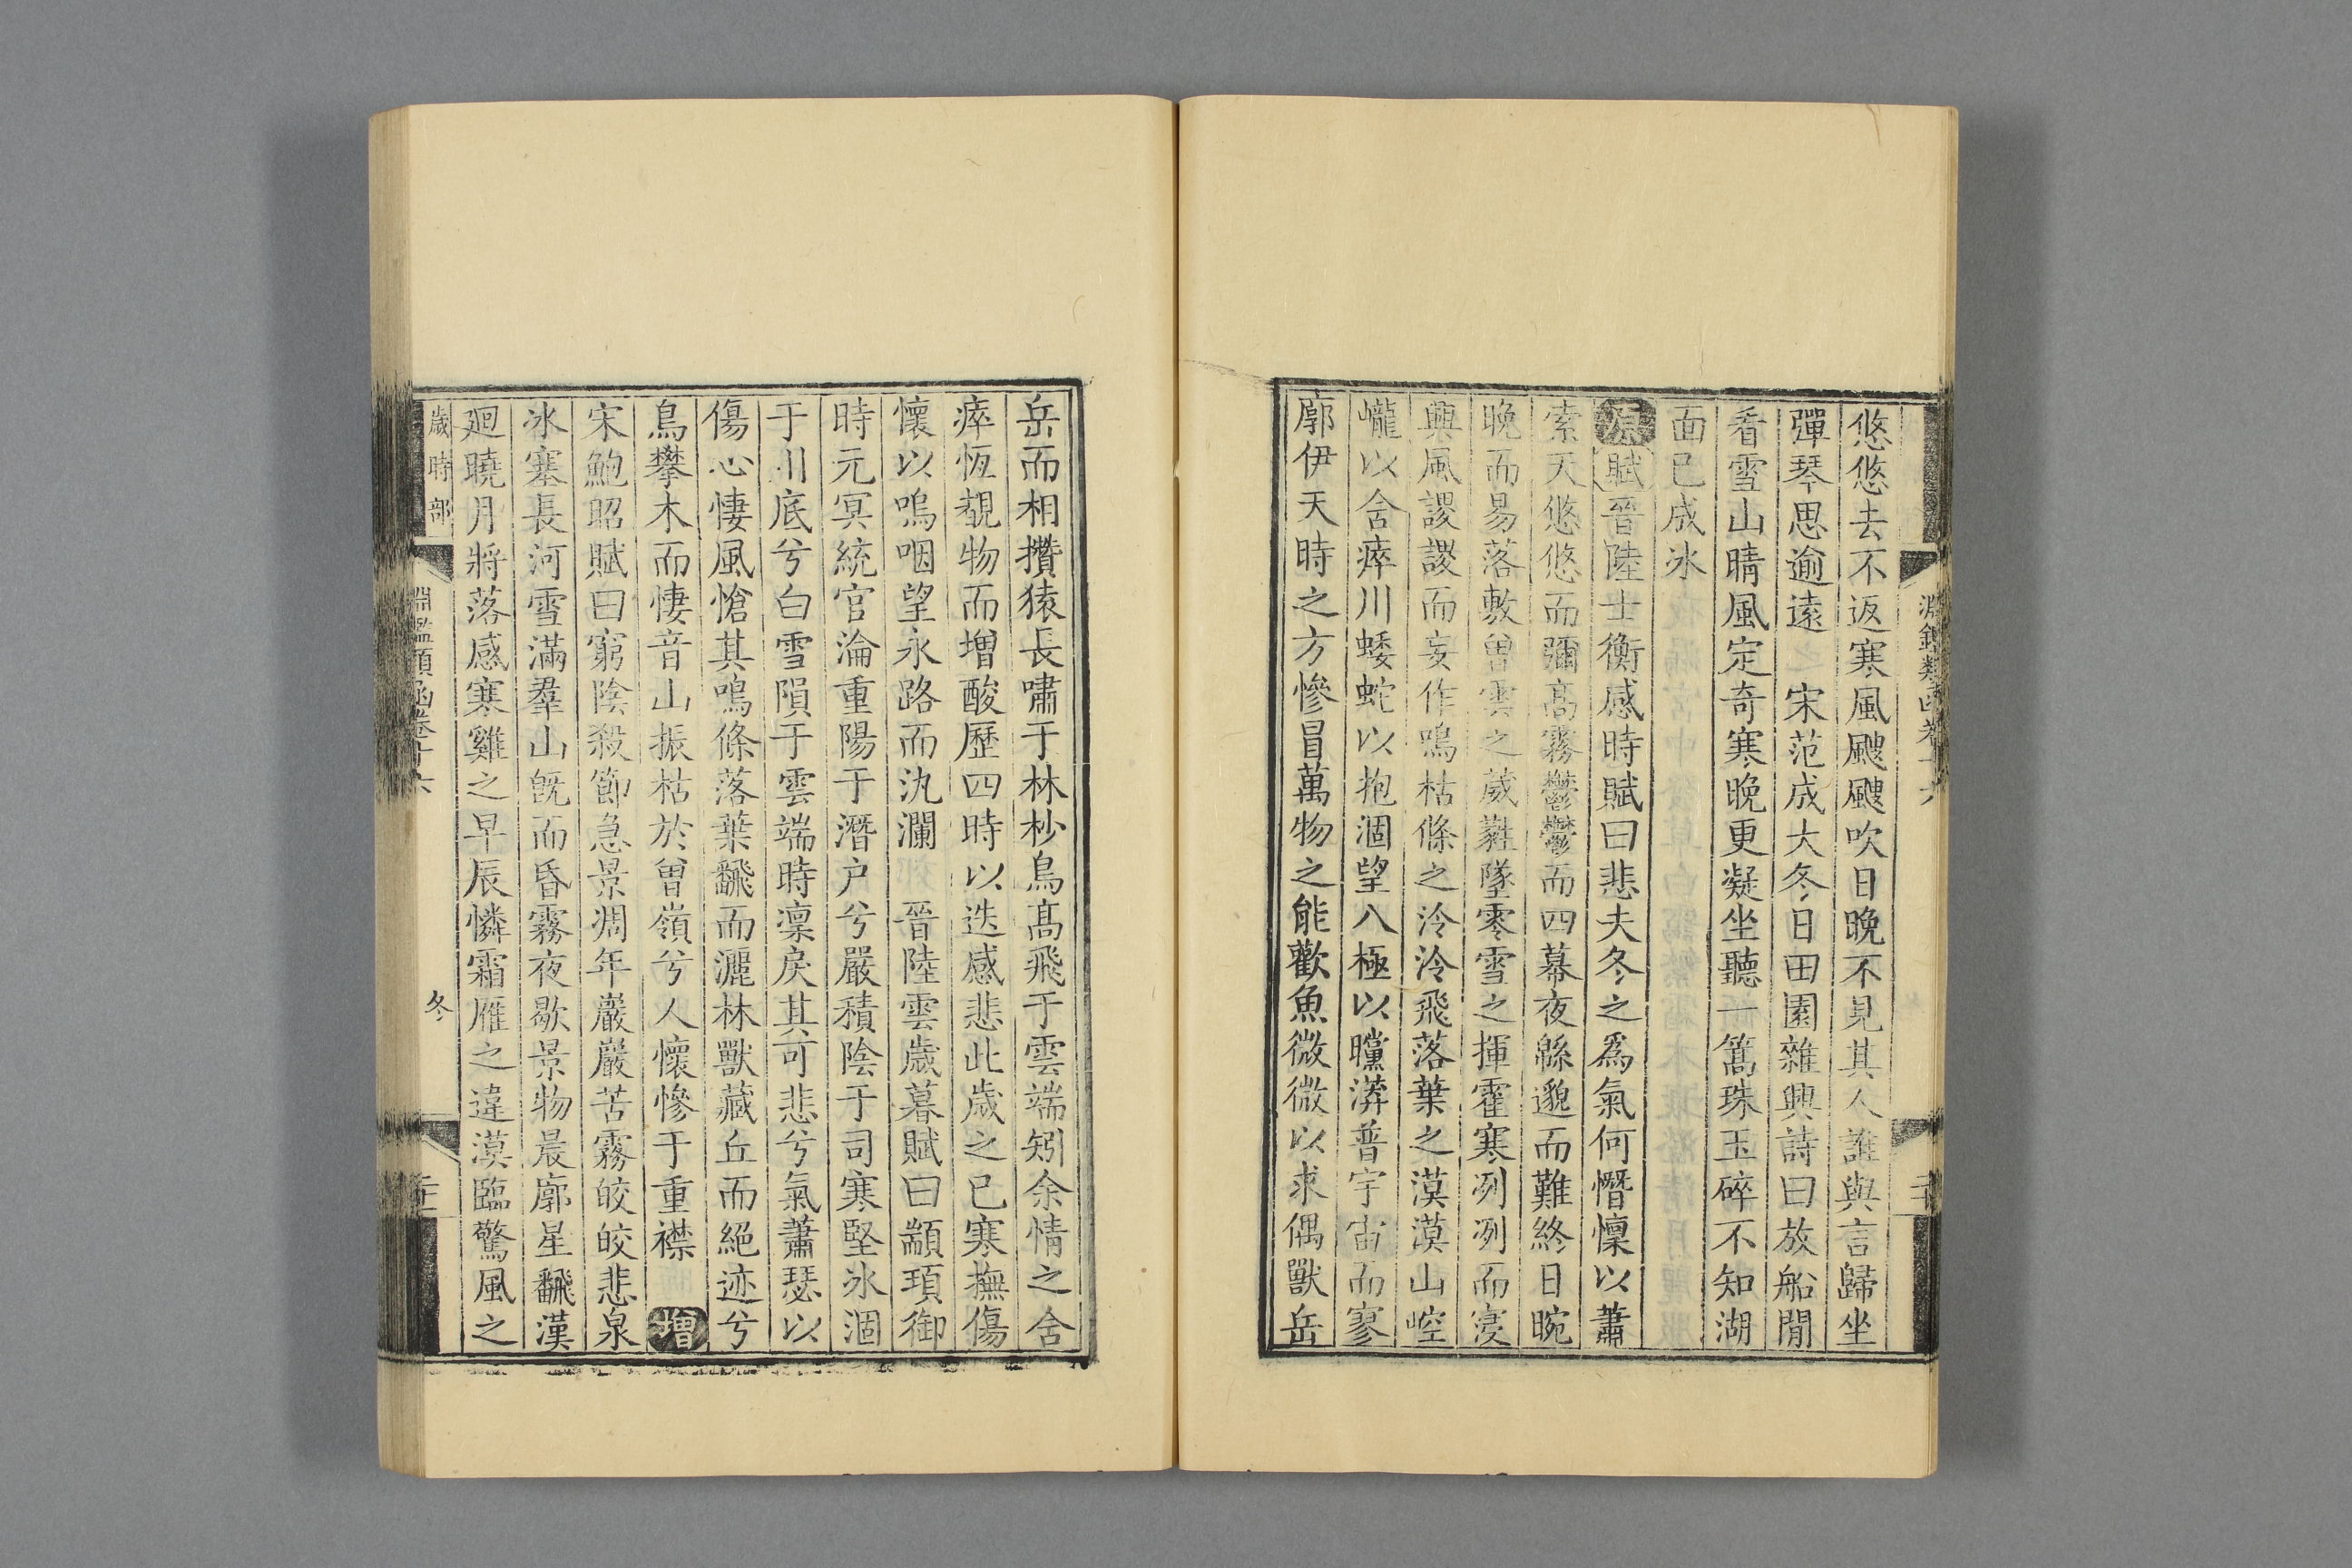 淵鑑類函卷十六
悠悠去不返寒風颼颼吹日晚不見其人誰與言歸坐
彈琴思逾遠 宋范成大冬日田園雜興詩曰放船閒
看雪山晴風定奇寒晚更凝坐聽一篙珠玉碎不知湖
面已成氷
原賦晉陸士衡感時賦曰悲夫冬之爲氣何憯懍以蕭
索天悠悠而彌高霧鬱鬱而四幕夜緜邈而難終日晼
晚而易落敷曾雲之葳蕤墜零雪之揮霍寒冽冽而寖
興風謖謖而妄作鳴枯條之泠泠飛落葉之漠漠山崆
巄以含瘁川蜲蛇以抱涸望八極以曭漭普宇宙而寥
廓伊天時之方慘曷萬物之能歡魚微微以求偶獸岳
岳而相攢猿長嘯于林杪鳥高飛于雲端矧余情之含
瘁恆覩物而增酸歷四時以迭感悲此歲之已寒撫傷
懷以嗚咽望永路而汍瀾 晉陸雲歲暮賦曰顓頊御
時元冥統官淪重陽于潛户兮嚴積陰于司寒堅氷涸
于川底兮白雪隕于雲端時凛戾其可悲兮氣蕭瑟以
傷心悽風愴其鳴條落葉飜而灑林獸藏丘而絕迹兮
鳥攀木而悽音山振枯於曾嶺兮人懷慘于重襟 增
宋鮑昭賦曰窮陰殺節急景凋年巖巖苦霧皎皎悲泉
冰塞長河雪滿羣山旣而昏霧夜歇景物晨廓星飜漢
廻曉月將落感寒雞之早辰憐霜雁之違漠臨驚風之
歲時部 淵鑑類函卷十六 冬